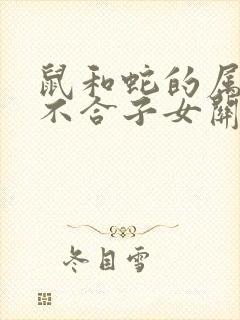 鼠和蛇的属
不合子女関
冬目雪